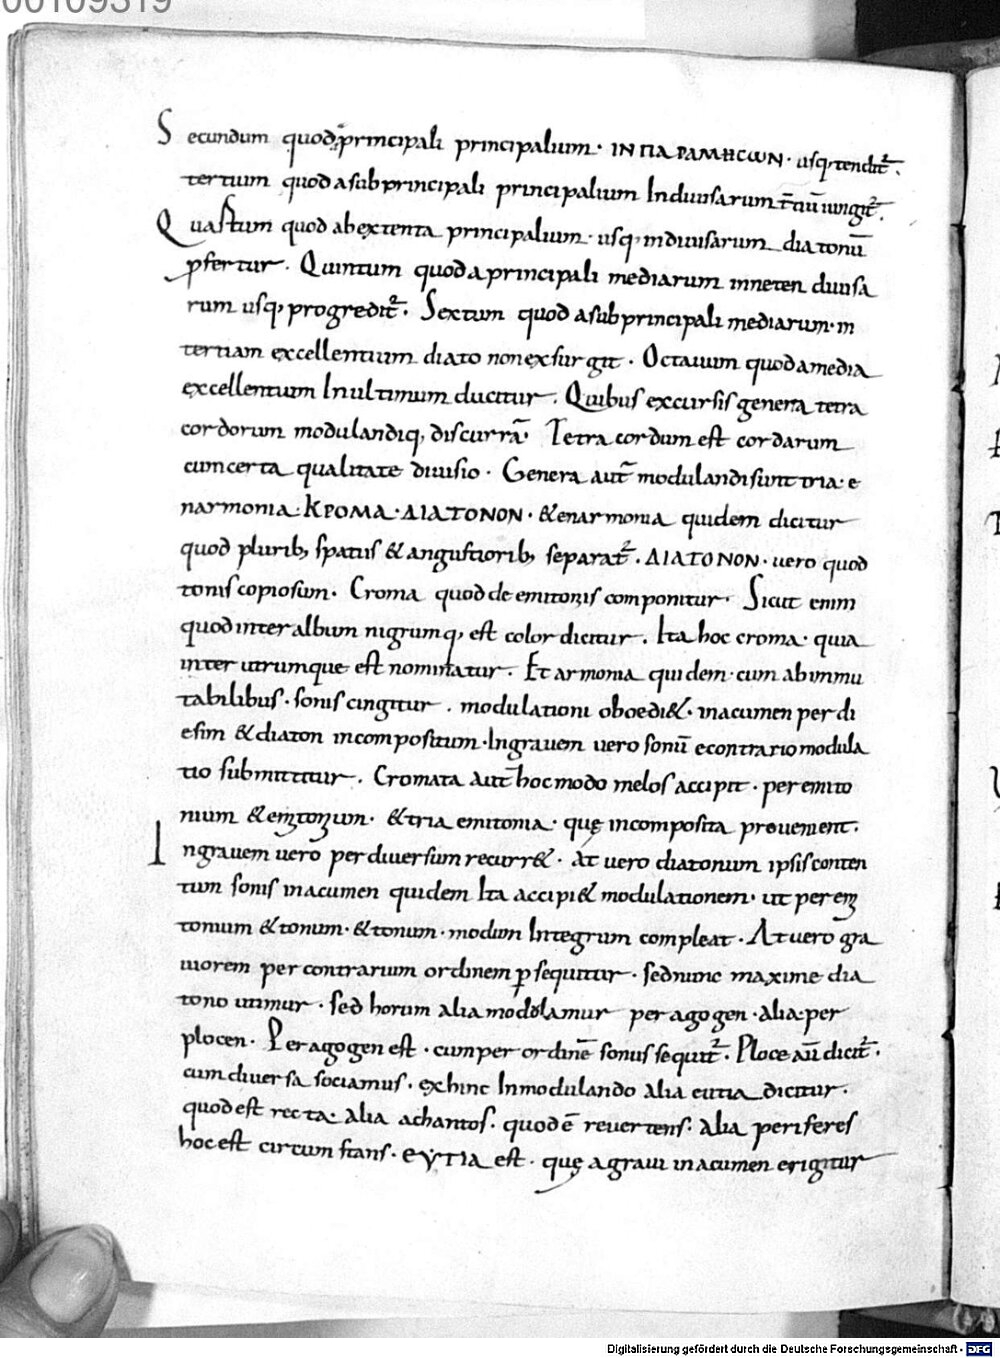 00109319
Secundum quod a principali principalium · IN ΠΑΡΑΜΗϹΩΝ · usq; tendit᷑.
tertium quod asubprincipali principalium Indiuisarum t̄tiū iungit᷑.
Quastum quod abextenta principalium · usq; indiuisarum diatonū
ꝓfertur. Quintum quod aprincipali mediarum inneten diuisa
rum usq; progredit᷑. Sextum quod asubprincipali mediarum · in
tertiam excellentium diato non exsurgit · Octauum quod amedia
excellentium Inultimum ducitur. Quibus excursis genera tetra
cordorum modulandiq; discurrā · Tetracordum est cordarum
cumcerta qualitate diuisio · Genera aut̄ modulandi sunt tria · e
narmonia · ΚΡΟΜΑ · ΔΙΑΤΟΝΟΝ · &enarmonia quidem dicitur
quod plurib; spatiis & angustiorib; separat᷑. ΔΙΑΤΟΝΟΝ · uero quod
tonis copiosum · Croma quod de emitonis componitur · Sicut enim
quod inter album nigrumq; est color dicitur. Ita hoc croma · quia
inter utrumque est nominatur. Et armonia quidem · cum ab immu
tabilibus · sonis cingitur. modulationi oboedi& · inacumen per di
esim & diaton incompositum · Ingrauem uero sonū econtrario modula
tio submittitur. Cromata aut̄ hoc modo melos accipit · per emito
nium & emitonium · & tria emitonia · quę incomposita proueniunt.
Ingrauem uero per diuersum recurr& · At uero diatonum ipsis conten
tum sonis inacumen quidem Ita accipi& modulationem · ut per emi
tonium & tonum · & tonum · modum Integrum compleat · At uero gra
uiorem per contrarium ordinem ꝑsequitur · sed nunc maxime dia
tono utimur · sed horum alia modulamur per agogen · alia · per
plocen · Per agogen est · cum per ordinē sonus sequit᷑. Ploce aū dicit᷑.
cum diuersa sociamus · exhinc Inmodulando alia eutia dicitur.
quod est recta · alia achantos · quod ē reuertens · alia periferes
hoc est circum stans · ΕΥΤΙΑ est · quę agraui inacumen erigitur
Digitalisierung gefördert durch die Deutsche Forschungsgemeinschaft - DFG